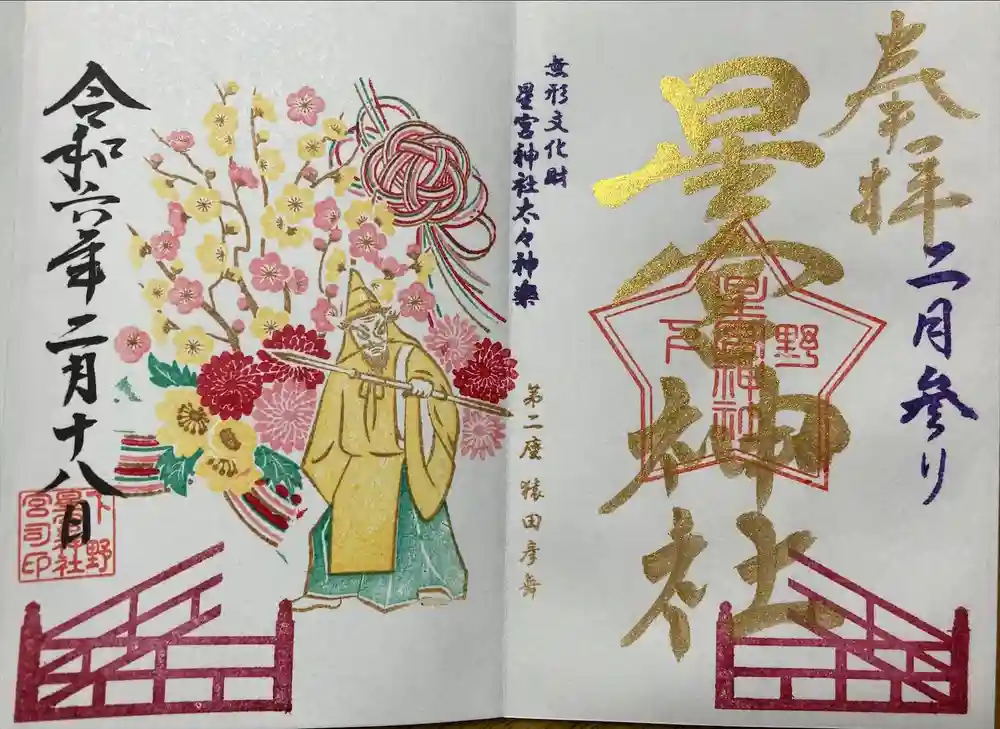 奉拝
二月参り
星宮神社
下野
星宮神社
無形文化財
星宮神社太々神楽
第二度 猿田彦舞
令和六年二月十八日
下野
星宮神社
宮司印